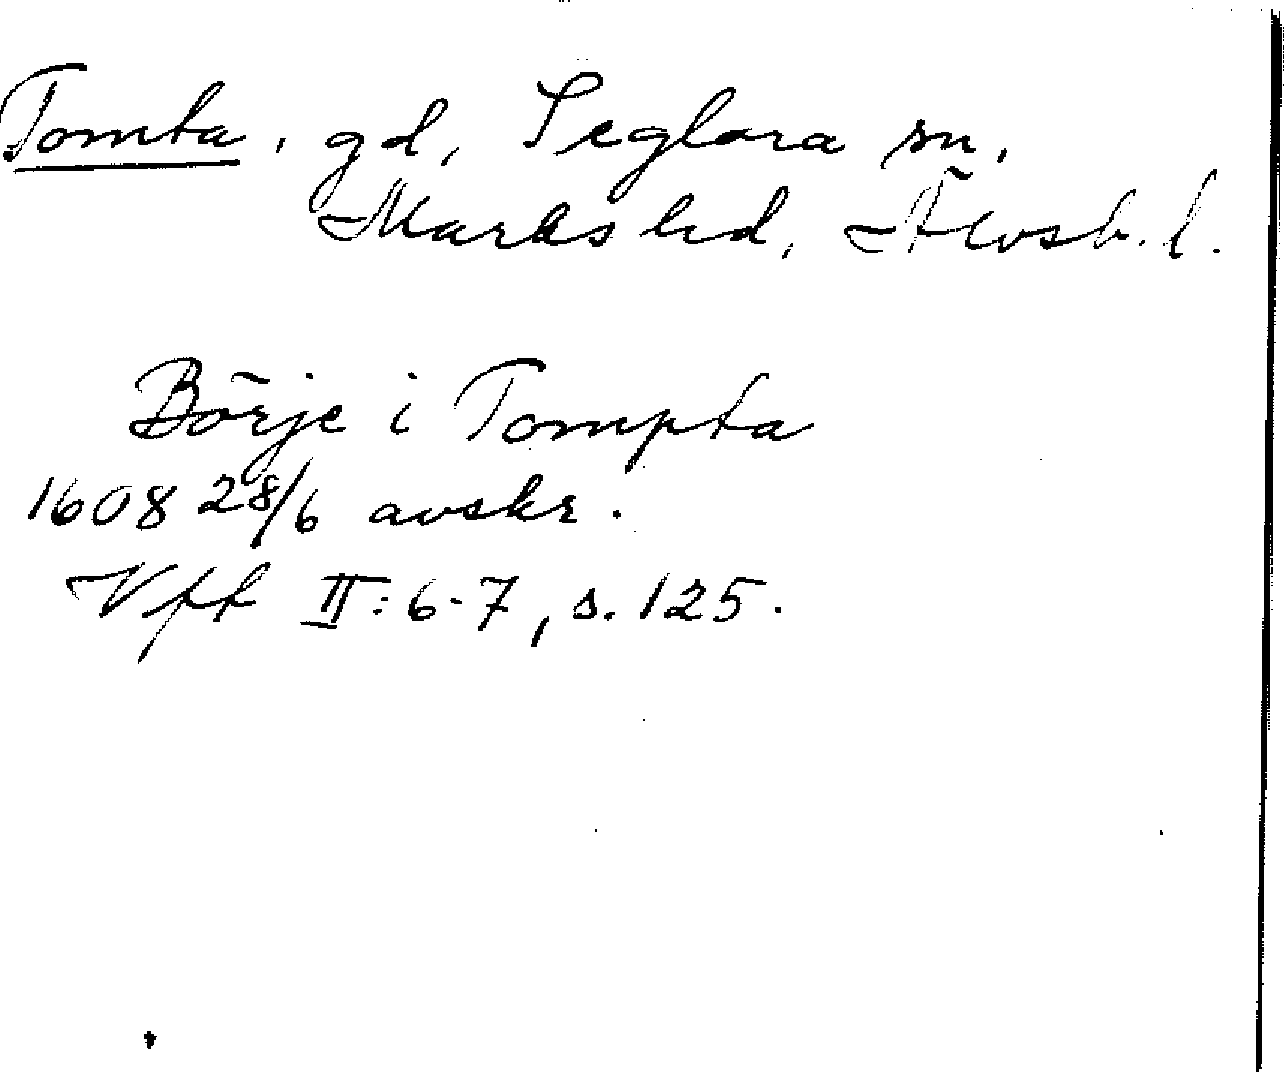 Tomta, gd, Seglora sn,
Marks hd, Älvsb. l.
Börje i Tompta
1608 28/6 avskr.
Vff II: 6-7, s. 125.